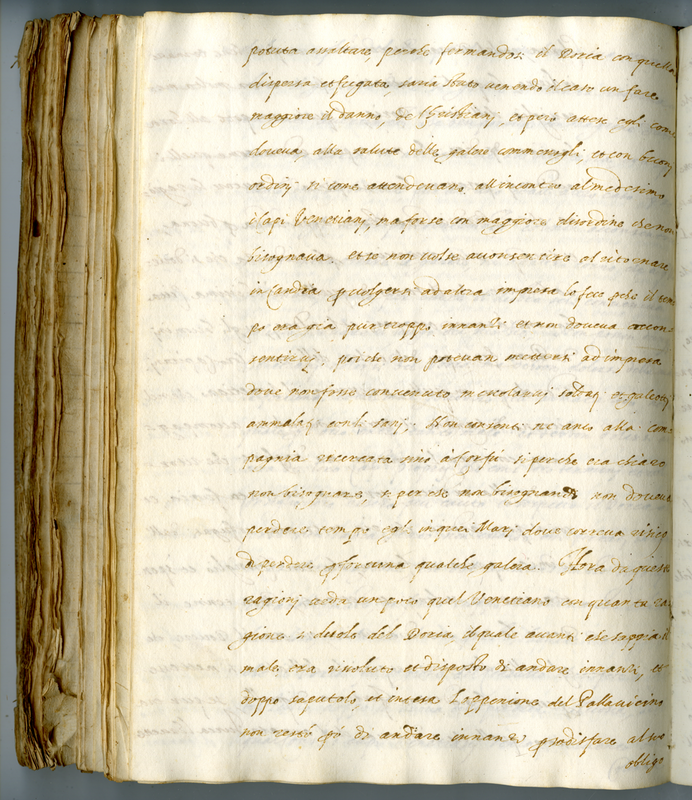 potuta assaltare, perche fermandosi il Doria con quella
dispersa et fugata, saria stato uenendo il caso un fare
maggiore il danno, de Christianj, et però attese egli come
doueua, alla salute delle galere commessegli, et con buonj
ordinj si come attendeuano all'incontro al medesimo
i Capi Venetianj, ma forse con maggiore disordine che non
bisognaua. et se non uolse acconsentire al ritornare
in Candia p uolgersi ad altra impresa lo fece pche il tem
po era già pur troppo innanti et non doueua accon
sentiruj, poi che non poteuan mettersi ad impresa
doue non fosse conuenuto mescolaruj soldatj et galeottj
ammalatj con li sanj. Non consentì ne anco alla com
pagnia ricercata sino à Corfù si perche era chiaro
non bisognare, si perche non bisognando non doueua
perdere tempo egli in quei Marj doue correua risico
di perdere p fortuna qualche galera. Hora da queste
ragionj ueda un poco quel Venetiano con quanta ra
gione si duole del Doria, il quale auanti che sappia il
male era risoluto et disposto di andare innanti, et
doppo saputolo, et intesa l'oppenione del Pallauicino
non restò pò di andare innanzi p sodisfare al suo
obligo